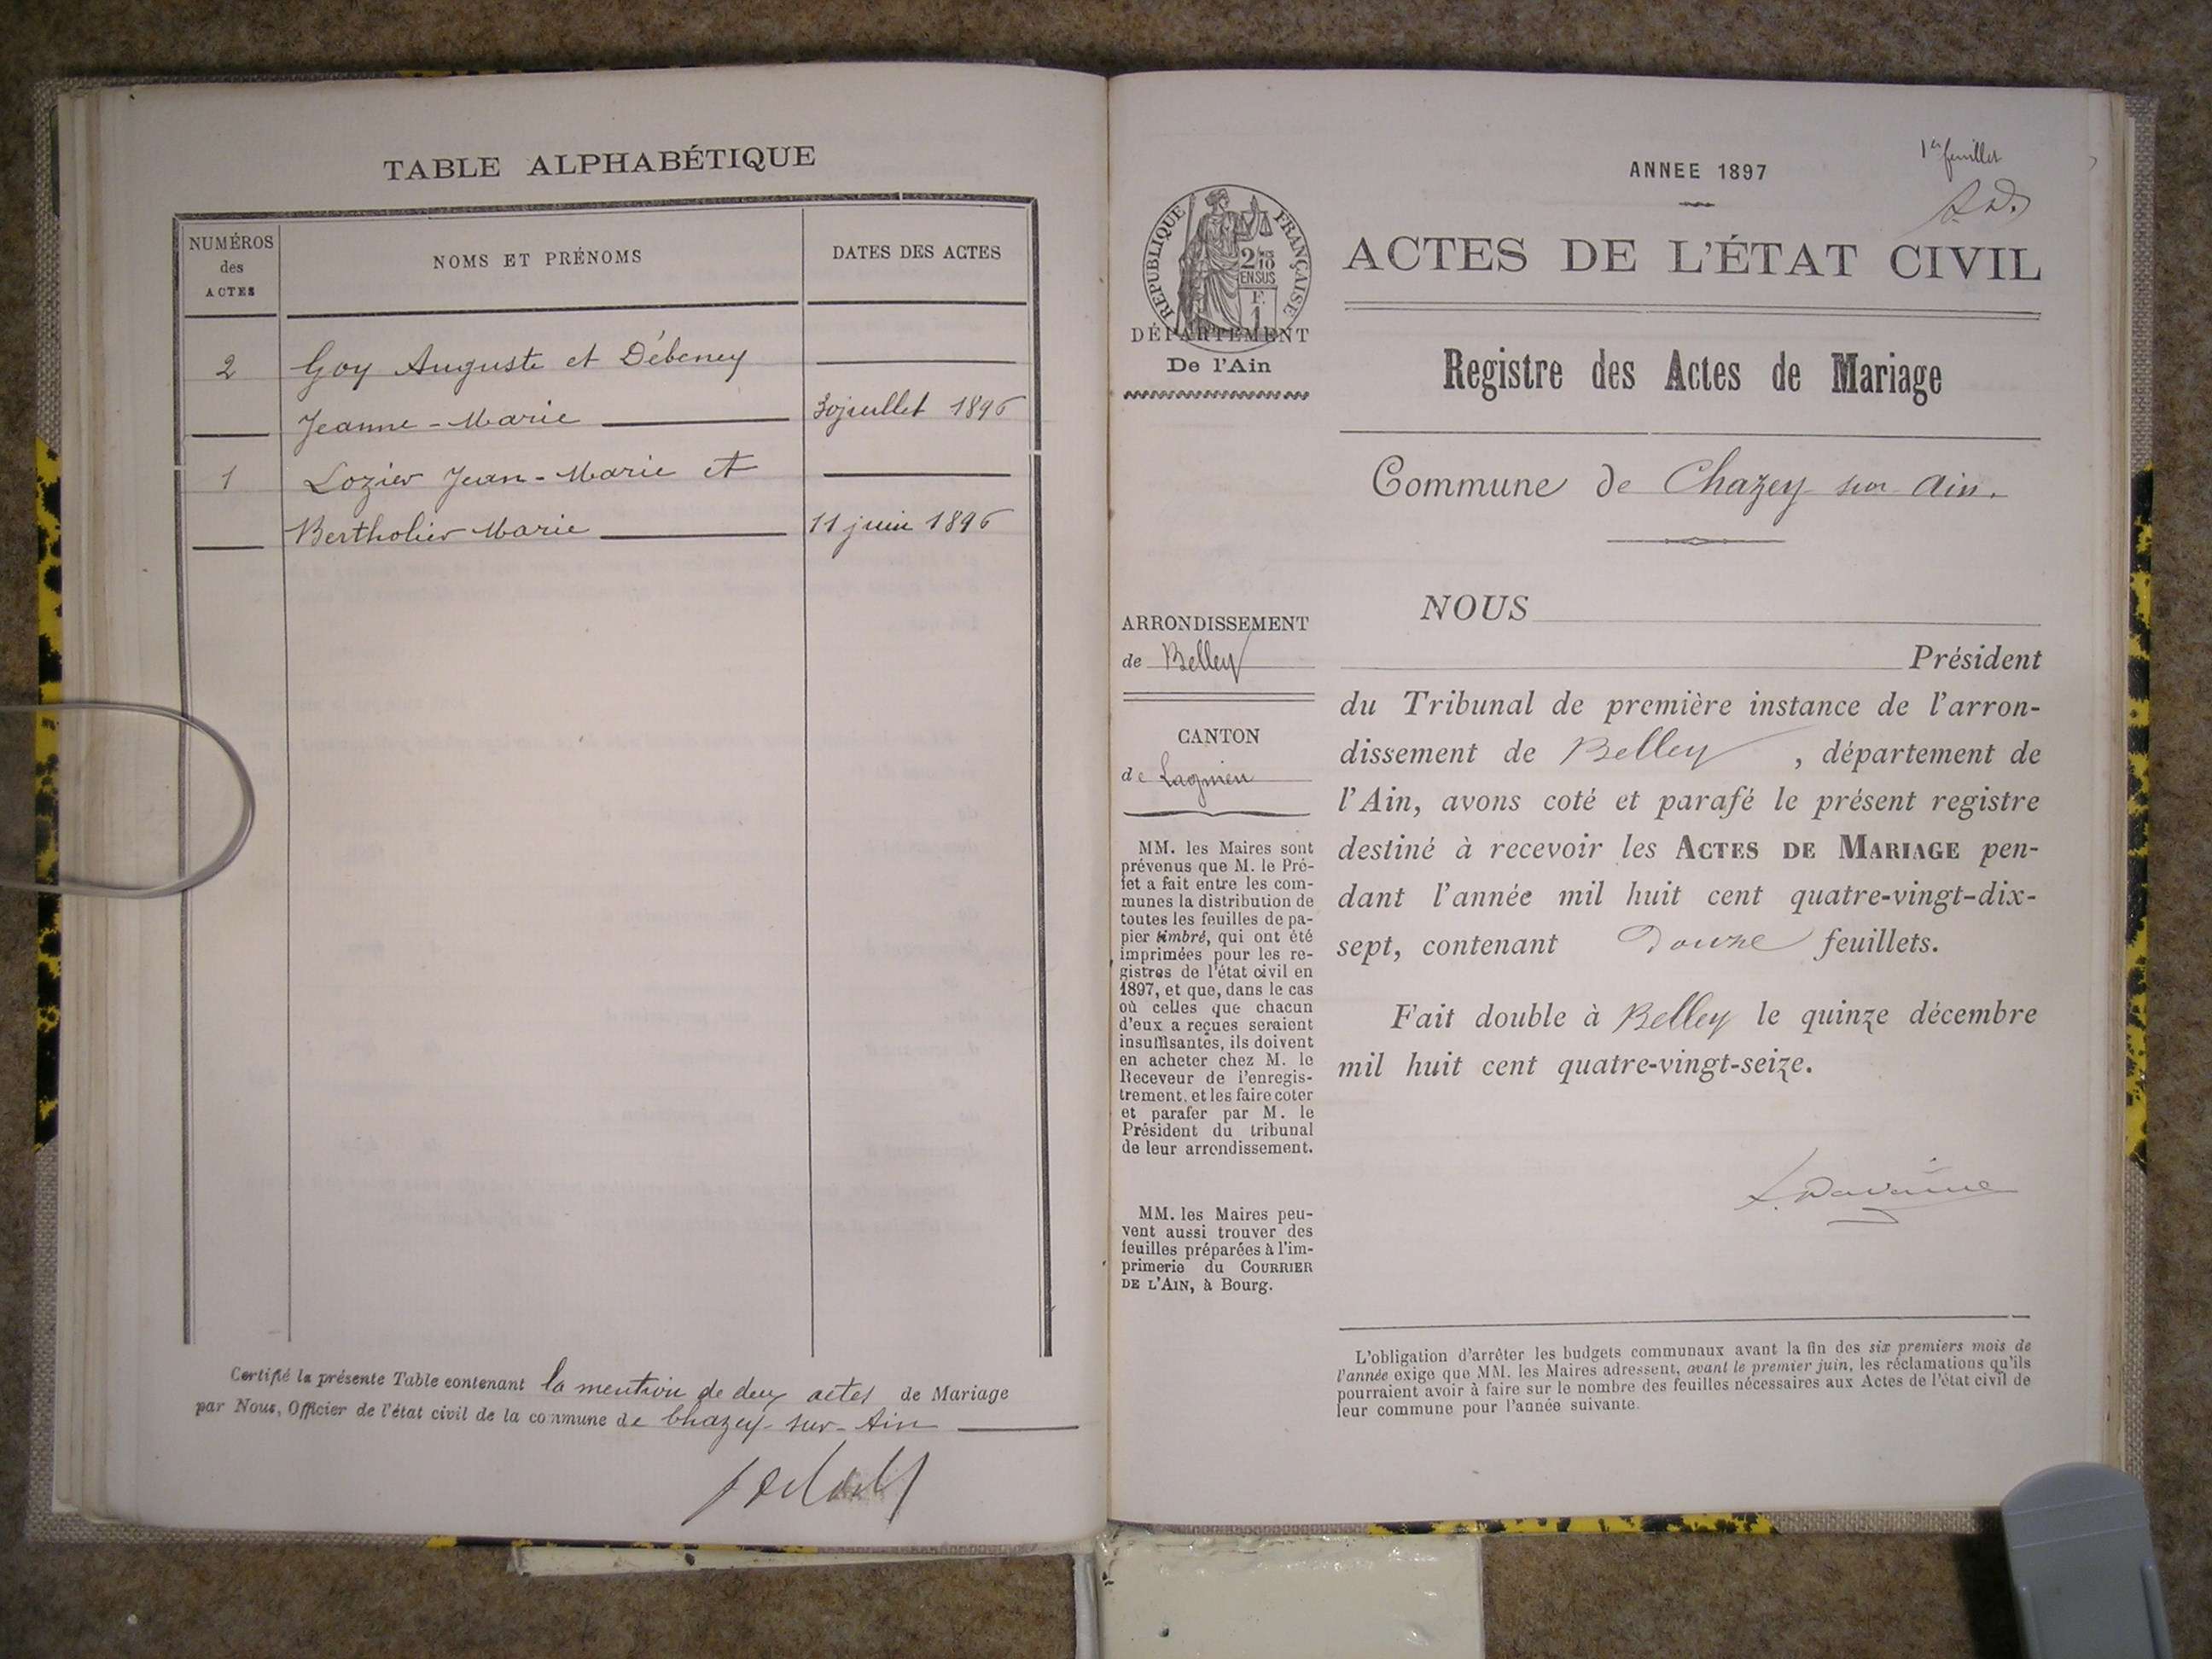 TABLE ALPHABÉTIQUE
NUMÉROS
des
ACTES
NOMS ET PRÉNOMS
DATES DES ACTES
2 Goy Auguste et Débeney
Jeanne-Marie 30 juillet 1896
1 Lozier Jean-Marie et
Bertholier Marie 11 juin 1896
Certifié la présente Table contenant la mention de deux actes de Mariage
par Nous, Officier de l'état civil de la commune de Chazey-sur-Ain
1er feuillet
ANNEE 1897
RÉPUBLIQUE FRANÇAISE
2/10
EN SUS
F.
1
DÉPARTEMENT
De l'Ain
ACTES DE L'ÉTAT CIVIL
Registre des Actes de Mariage
Commune de Chazey sur Ain.
ARRONDISSEMENT
de Belley
CANTON
de Lagnieu
MM. les Maires sont
prévenus que M. le Pré-
fet a fait entre les com-
munes la distribution de
toutes les feuilles de pa-
pier timbré, qui ont été
imprimées pour les re-
gistres de l'état civil en
1897, et que, dans le cas
où celles que chacun
d'eux a reçues seraient
insuffisantes, ils doivent
en acheter chez M. le
Receveur de l'enregis-
trement, et les faire coter
et parafer par M. le
Président du tribunal
de leur arrondissement.
MM. les Maires peu-
vent aussi trouver des
feuilles préparées à l'im-
primerie du COURRIER
DE L'AIN, à Bourg.
NOUS
Président
du Tribunal de première instance de l'arron-
dissement de Belley, département de
l'Ain, avons coté et parafé le présent registre
destiné à recevoir les ACTES DE MARIAGE pen-
dant l'année mil huit cent quatre-vingt-dix-
sept, contenant Douze feuillets.
Fait double à Belley le quinze décembre
mil huit cent quatre-vingt-seize.
L'obligation d'arrêter les budgets communaux avant la fin des six premiers mois de
l'année exige que MM. les Maires adressent, avant le premier juin, les réclamations qu'ils
pourraient avoir à faire sur le nombre des feuilles nécessaires aux Actes de l'état civil de
leur commune pour l'année suivante.